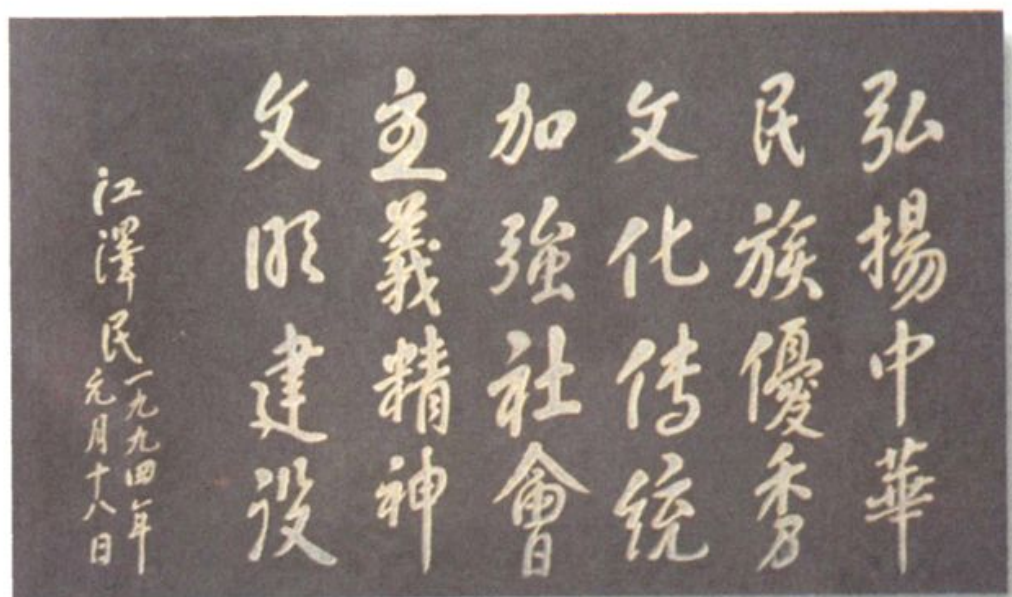 弘揚中華
民族優秀
文化传統
加強社會
主義精神
文明建设
江澤民
一九九四年
元月十八日